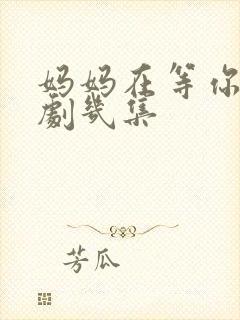 妈妈在等你
劇幾集
芳瓜